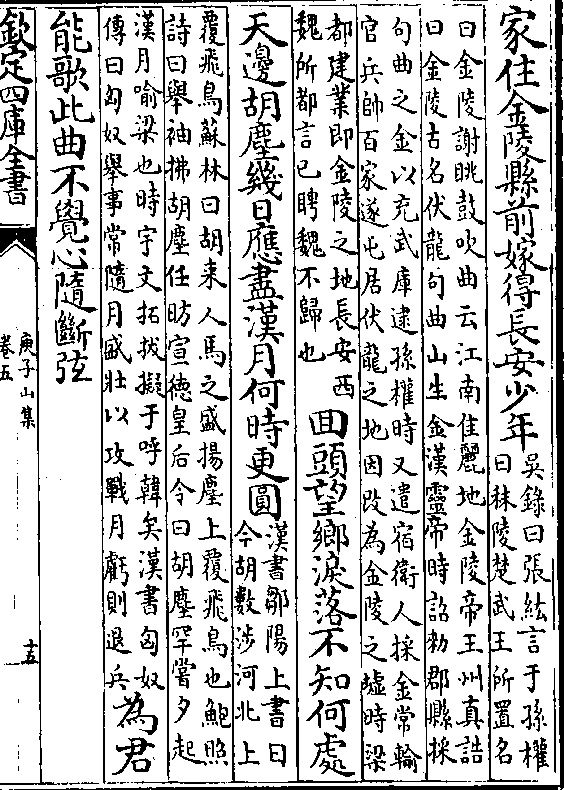 家住金陵縣前嫁得長安少年吳錄曰張紘言于孫權
曰秣陵楚武王所置名
曰金陵謝眺鼓吹曲云江南佳麗地金陵帝王州真誥
曰金陵古名伏龍句曲山生金漢靈帝時詔勑郡縣採
句曲之金以充武庫逮孫權時又遣宿衛人採金常輸
官兵帥百家遂屯居伏龍之地因改為金陵之墟時梁
都建業即金陵之地長安西
魏所都言已聘魏不歸也
回頭望鄉淚落不知何處
天邊胡塵幾日應盡漢月何時更圓漢書鄒陽上書曰
今胡數涉河北上
覆飛鳥蘇林曰胡来人馬之盛揚塵上覆飛鳥也鮑照
詩曰舉袖拂胡塵任昉宣徳皇后令曰胡塵罕嘗夕起
漢月喻梁也時宇文拓拔擬于呼韓矣漢書匈奴
傳曰匈奴舉事常隨月盛壯以攻戰月虧則退兵
為君
能歌此曲不覺心隨斷弦
欽定四庫全書
庾子山集
卷五
十五